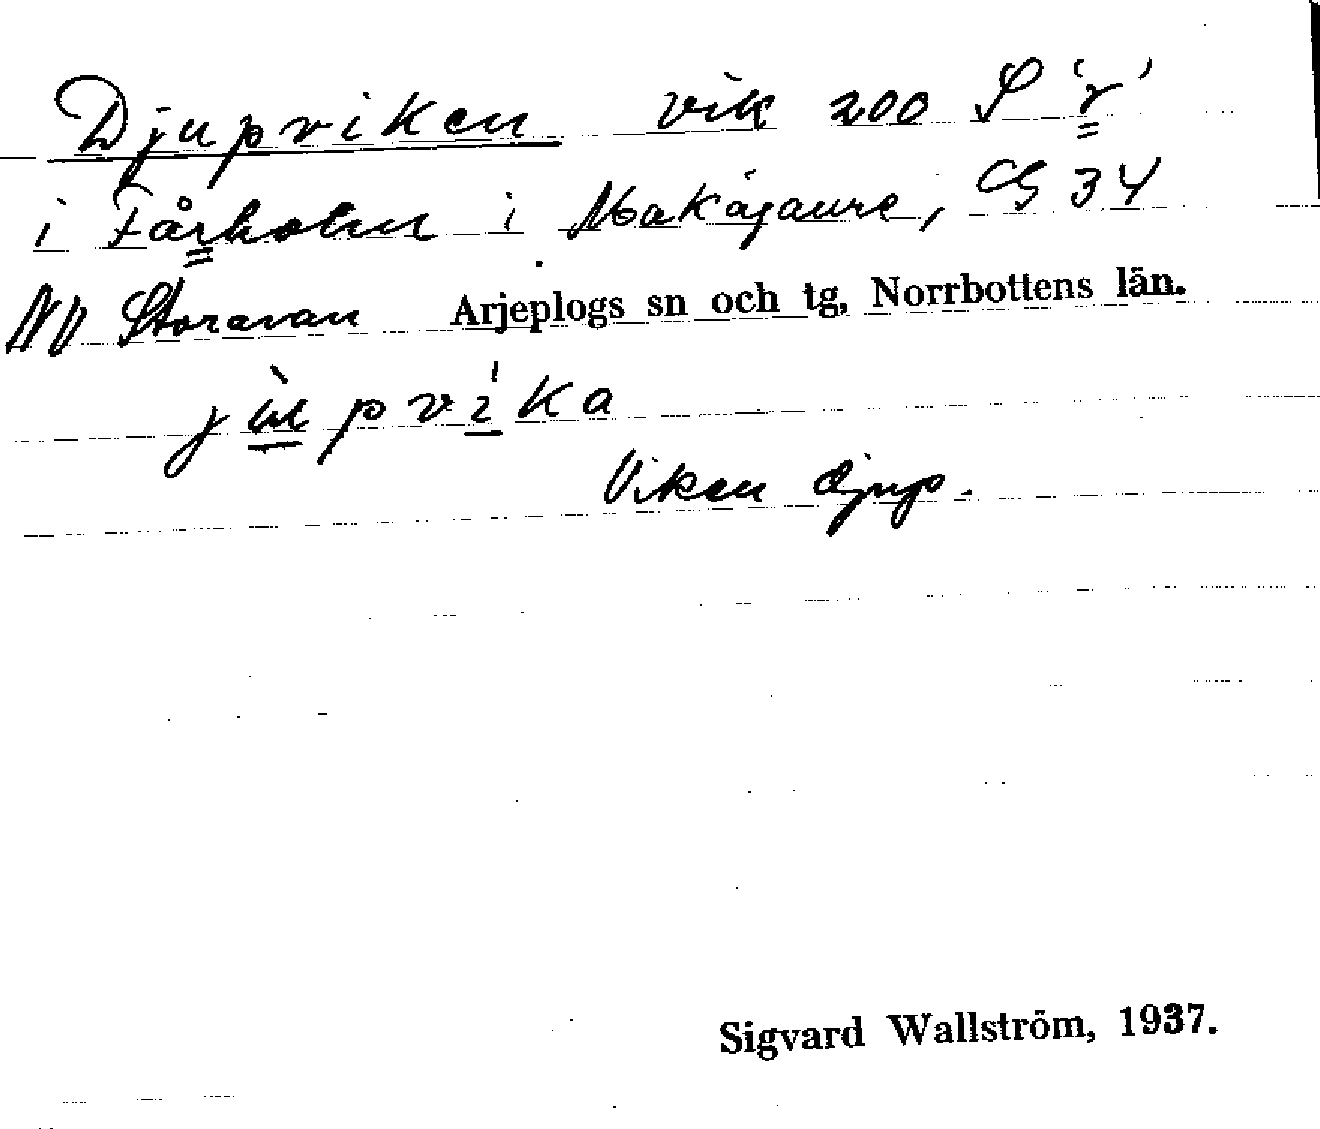 Djupviken vik 200 S 'r'
i Fårholm i Makåjaure, G 34
NV Storavan Arjeplogs sn och tg, Norrbottens län.
jùpvíka
Viken djup.
Sigvard Wallström, 1937.